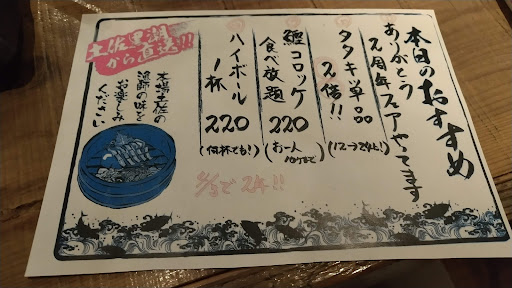 本日のおすすめ
ありがとう
2周年フェアやってます
タタキ単品
2倍!!
(12→24切!)
鰹コロッケ
食べ放題
220
ハイボール
1杯
220
(何杯でも!)
土佐黒潮
から直送!!
本場土佐の
漁師の味を
お楽しみ
ください